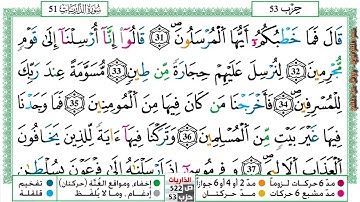 حِزْب 53
سُورَةُ الذَّارِيَات 51
قَالَ فَمَا خَطْبُكُمُۥٓ أَيُّهَا ٱلْمُرْسَلُونَ ۖ 31 قَالُوٓا۟ إِنَّآ أُرْسِلْنَآ إِلَىٰ قَوْمٍ
مُّجْرِمِينَ 32 لِنُرْسِلَ عَلَيْهِمْ حِجَارَةً مِّن طِينٍ ۖ 33 مُّسَوَّمَةً عِندَ رَبِّكَ
لِلْمُسْرِفِينَ ۖ 34 فَأَخْرَجْنَا مَن كَانَ فِيهَا مِنَ ٱلْمُومِنِينَ 35 فَمَا وَجَدْنَا
فِيهَا غَيْرَ بَيْتٍ مِّنَ ٱلْمُسْلِمِينَ ۖ 36 وَتَرَكْنَا فِيهَآ ءَايَةً لِّلَّذِينَ يَخَافُونَ
ٱلْعَذَابَ ٱلْأَلِيمَ ۖ 37 وَفِے مُوسَىٰٓ إِذْ أَرْسَلْنَٰهُ إِلَىٰ فِرْعَوْنَ بِسُلْطَٰنٍ
مدّ 6 حركات لزوماً مدّ 2 أو 4 أو 6 جوازاً إخفاء، ومواقع الغُنَّة (حركتان) تفخيم
مدّ مشبع 6 حركات مدّ حركتان إدغام، وما لا يُلفَظ قلقلة
الذاريات
ص 522
حزب 53